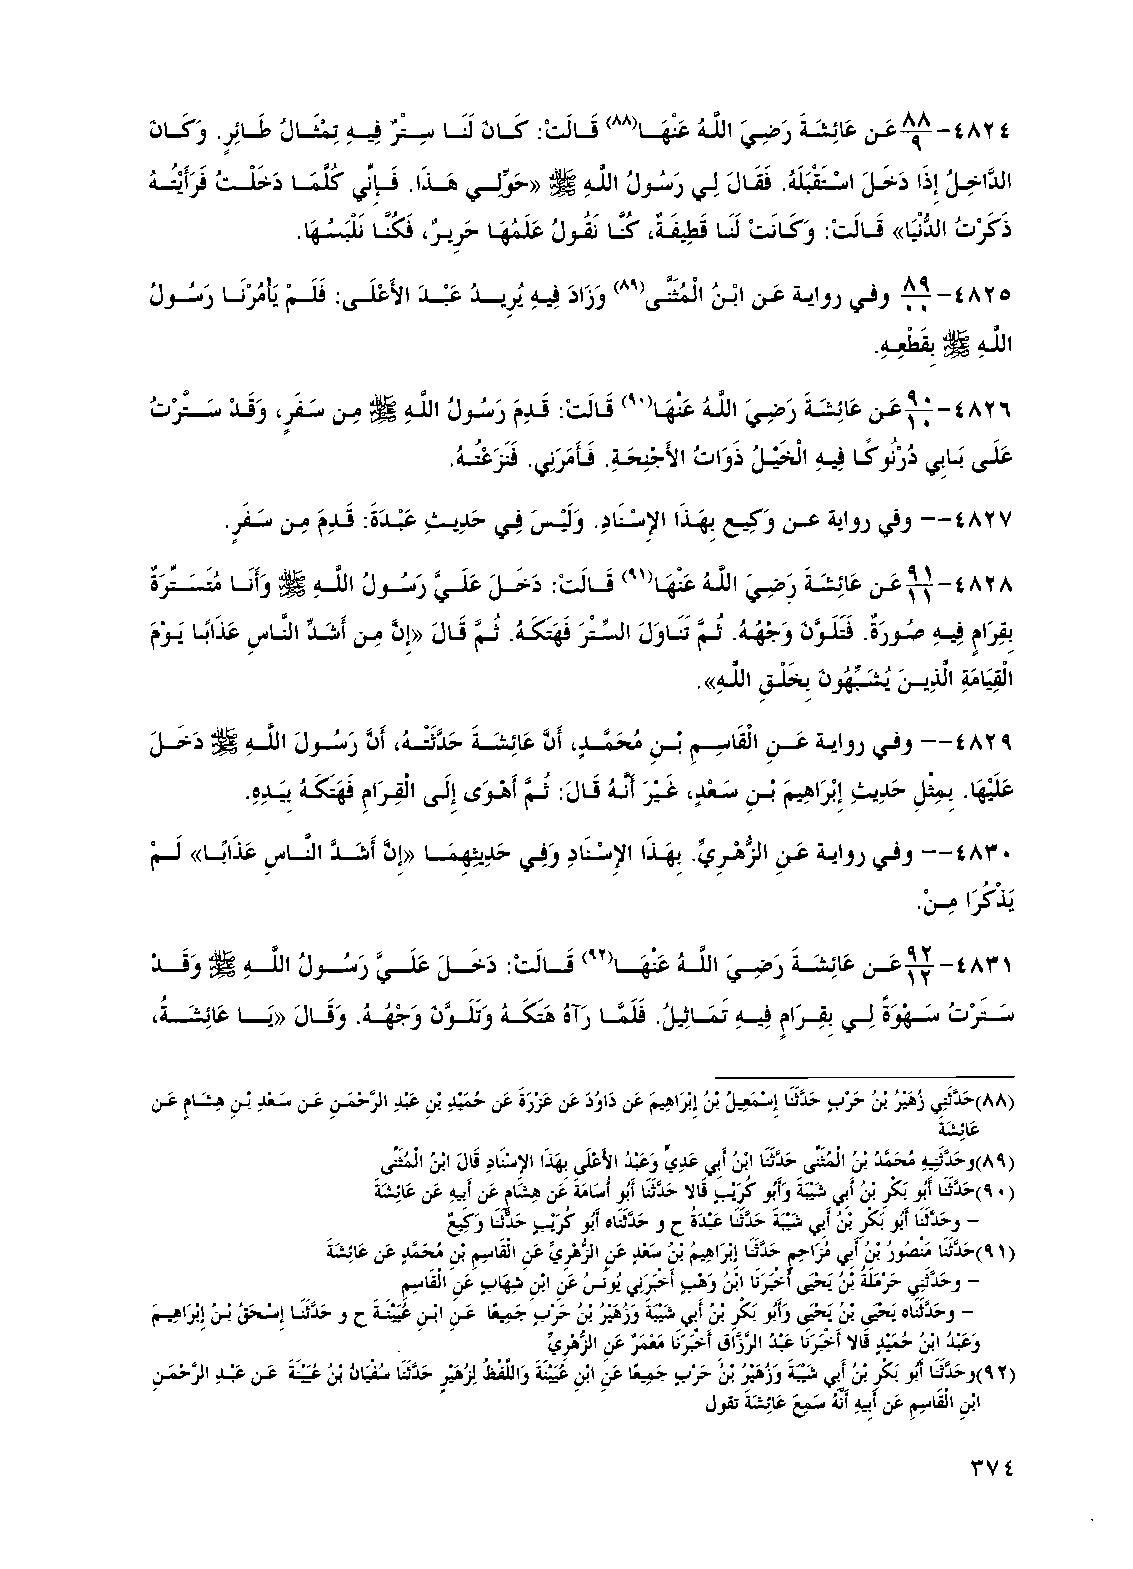 ٤٨٢٤- ٨٨/٩ عَن عَائِشَةَ رَضِيَ اللَّهُ عَنْهَا(٨٨) قَالَتْ: كَانَ لَنَا سِتْرٌ فِيهِ تِمْثَالُ طَائِرٍ. وَكَانَ
الدَّاخِلُ إِذَا دَخَلَ اسْتَقْبَلَهُ. فَقَالَ لِي رَسُولُ اللهِ ﷺ «حَوِّلِي هَذَا. فَإِنِّي كُلَّمَا دَخَلْتُ فَرَأَيْتُهُ
ذَكَرْتُ الدُّنْيَا» قَالَتْ: وَكَانَتْ لَنَا قَطِيفَةٌ، كُنَّا نَقُولُ عَلَمُهَا حَرِيرٌ، فَكُنَّا نَلْبَسُهَا.
٤٨٢٥- ٨٩/٠٠ وفي رواية عَن ابْنُ الْمُثَنَّى(٨٩) وَزَادَ فِيهِ يُرِيدُ عَبْدَ الأَعْلَى: فَلَمْ يَأْمُرْنَا رَسُولُ
اللَّهِ ﷺ بِقَطْعِهِ.
٤٨٢٦- ٩٠/١٠ عَن عَائِشَةَ رَضِيَ اللَّهُ عَنْهَا(٩٠) قَالَتْ: قَدِمَ رَسُولُ اللَّهِ ﷺ مِن سَفَرٍ، وَقَدْ سَتَّرْتُ
عَلَى بَابِي دُرْنُوكًا فِيهِ الْخَيْلُ ذَوَاتُ الأَجْنِحَةِ. فَأَمَرَنِي. فَنَزَعْتُهُ.
٤٨٢٧-- وفي رواية عن وَكِيع بِهَذَا الإِسْنَادِ. وَلَيْسَ فِي حَدِيثِ عَبْدَةَ: قَدِمَ مِن سَفَرٍ.
٤٨٢٨- ٩١/١١ عَن عَائِشَةَ رَضِيَ اللَّهُ عَنْهَا(٩١) قَالَتْ: دَخَلَ عَلَيَّ رَسُولُ اللَّهِ ﷺ وَأَنَا مُتَسَتِّرَةٌ
بِقِرَامٍ فِيهِ صُورَةٌ. فَتَلَوَّنَ وَجْهُهُ. ثُمَّ تَنَاوَلَ السِّتْرَ فَهَتَكَهُ. ثُمَّ قَالَ «إِنَّ مِن أَشَدِّ النَّاسِ عَذَابًا يَوْمَ
الْقِيَامَةِ الَّذِينَ يُشَبِّهُونَ بِخَلْقِ اللَّهِ».
٤٨٢٩-- وفي رواية عَنِ الْقَاسِمِ بْنِ مُحَمَّدٍ، أَنَّ عَائِشَةَ حَدَّثَتْهُ، أَنَّ رَسُولَ اللَّهِ ﷺ دَخَلَ
عَلَيْهَا. بِمِثْلِ حَدِيثِ إِبْرَاهِيمَ بْنِ سَعْدٍ، غَيْرَ أَنَّهُ قَالَ: ثُمَّ أَهْوَى إِلَى الْقِرَامِ فَهَتَكَهُ بِيَدِهِ.
٤٨٣٠-- وفي رواية عَنِ الزُّهْرِيِّ. بِهَذَا الإِسْنَادِ وَفِي حَدِيثِهِمَا «إِنَّ أَشَدَّ النَّاسِ عَذَابًا» لَمْ
يَذْكُرَا مِنْ.
٤٨٣١- ٩٢/١٢ عَن عَائِشَةَ رَضِيَ اللَّهُ عَنْهَا(٩٢) قَالَتْ: دَخَلَ عَلَيَّ رَسُولُ اللَّهِ ﷺ وَقَدْ
سَتَرْتُ سَهْوَةً لِي بِقِرَامٍ فِيهِ تَمَاثِيلُ. فَلَمَّا رَآهُ هَتَكَهُ وَتَلَوَّنَ وَجْهُهُ. وَقَالَ «يَا عَائِشَةُ،
(٨٨)حَدَّثَنِي زُهَيْرُ بْنُ حَرْبٍ حَدَّثَنَا إِسْمَعِيلُ بْنُ إِبْرَاهِيمَ عَن دَاوُدَ عَن عَزْرَةَ عَن حُمَيْدِ بْنِ عَبْدِ الرَّحْمَنِ عَن سَعْدِ بْنِ هِشَامٍ عَن
عَائِشَةَ
(٨٩)وحَدَّثَنِيهِ مُحَمَّدُ بْنُ الْمُثَنَّى حَدَّثَنَا ابْنُ أَبِي عَدِيٍّ وَعَبْدُ الأَعْلَى بِهَذَا الإِسْنَادِ قَالَ ابْنُ الْمُثَنَّى
(٩٠)حَدَّثَنَا أَبُو بَكْرِ بْنُ أَبِي شَيْبَةَ وَأَبُو كُرَيْبٍ قَالا حَدَّثَنَا أَبُو أُسَامَةَ عَن هِشَامٍ عَن أَبِيهِ عَن عَائِشَةَ
- وحَدَّثَنَا أَبُو بَكْرِ بْنُ أَبِي شَيْبَةَ حَدَّثَنَا عَبْدَةُ ح و حَدَّثَنَاه أَبُو كُرَيْبٍ حَدَّثَنَا وَكِيعٌ
(٩١)حَدَّثَنَا مَنْصُورُ بْنُ أَبِي مُزَاحِمٍ حَدَّثَنَا إِبْرَاهِيمُ بْنُ سَعْدٍ عَنِ الزُّهْرِيِّ عَنِ الْقَاسِمِ بْنِ مُحَمَّدٍ عَن عَائِشَةَ
- وحَدَّثَنِي حَرْمَلَةُ بْنُ يَحْيَى أَخْبَرَنَا ابْنُ وَهْبٍ أَخْبَرَنِي يُونُسُ عَنِ ابْنِ شِهَابٍ عَنِ الْقَاسِمِ
- وحَدَّثَنَاه يَحْيَى بْنُ يَحْيَى وَأَبُو بَكْرِ بْنُ أَبِي شَيْبَةَ وَزُهَيْرُ بْنُ حَرْبٍ جَمِيعًا عَنِ ابْنِ عُيَيْنَةَ ح و حَدَّثَنَا إِسْحَقُ بْنُ إِبْرَاهِيمَ
وَعَبْدُ ابْنُ حُمَيْدٍ قَالا أَخْبَرَنَا عَبْدُ الرَّزَّاقِ أَخْبَرَنَا مَعْمَرٌ عَنِ الزُّهْرِيِّ
(٩٢)وحَدَّثَنَا أَبُو بَكْرِ بْنُ أَبِي شَيْبَةَ وَزُهَيْرُ بْنُ حَرْبٍ جَمِيعًا عَنِ ابْنِ عُيَيْنَةَ وَاللَّفْظُ لِزُهَيْرٍ حَدَّثَنَا سُفْيَانُ بْنُ عُيَيْنَةَ عَن عَبْدِ الرَّحْمَنِ
ابْنِ الْقَاسِمِ عَن أَبِيهِ أَنَّهُ سَمِعَ عَائِشَةَ تقول
٣٧٤